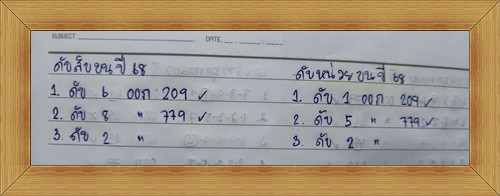 SUBJECT
DATE.
ดับสิบบนปี 68
1. ดับ 6 ออก 209 ✓
2. ดับ 8 " 779 ✓
3. ดับ 2 "
ดับหน่วยบนปี 68
1. ดับ 1 ออก 209 ✓
2. ดับ 5 " 779 ✓
3. ดับ 2 "